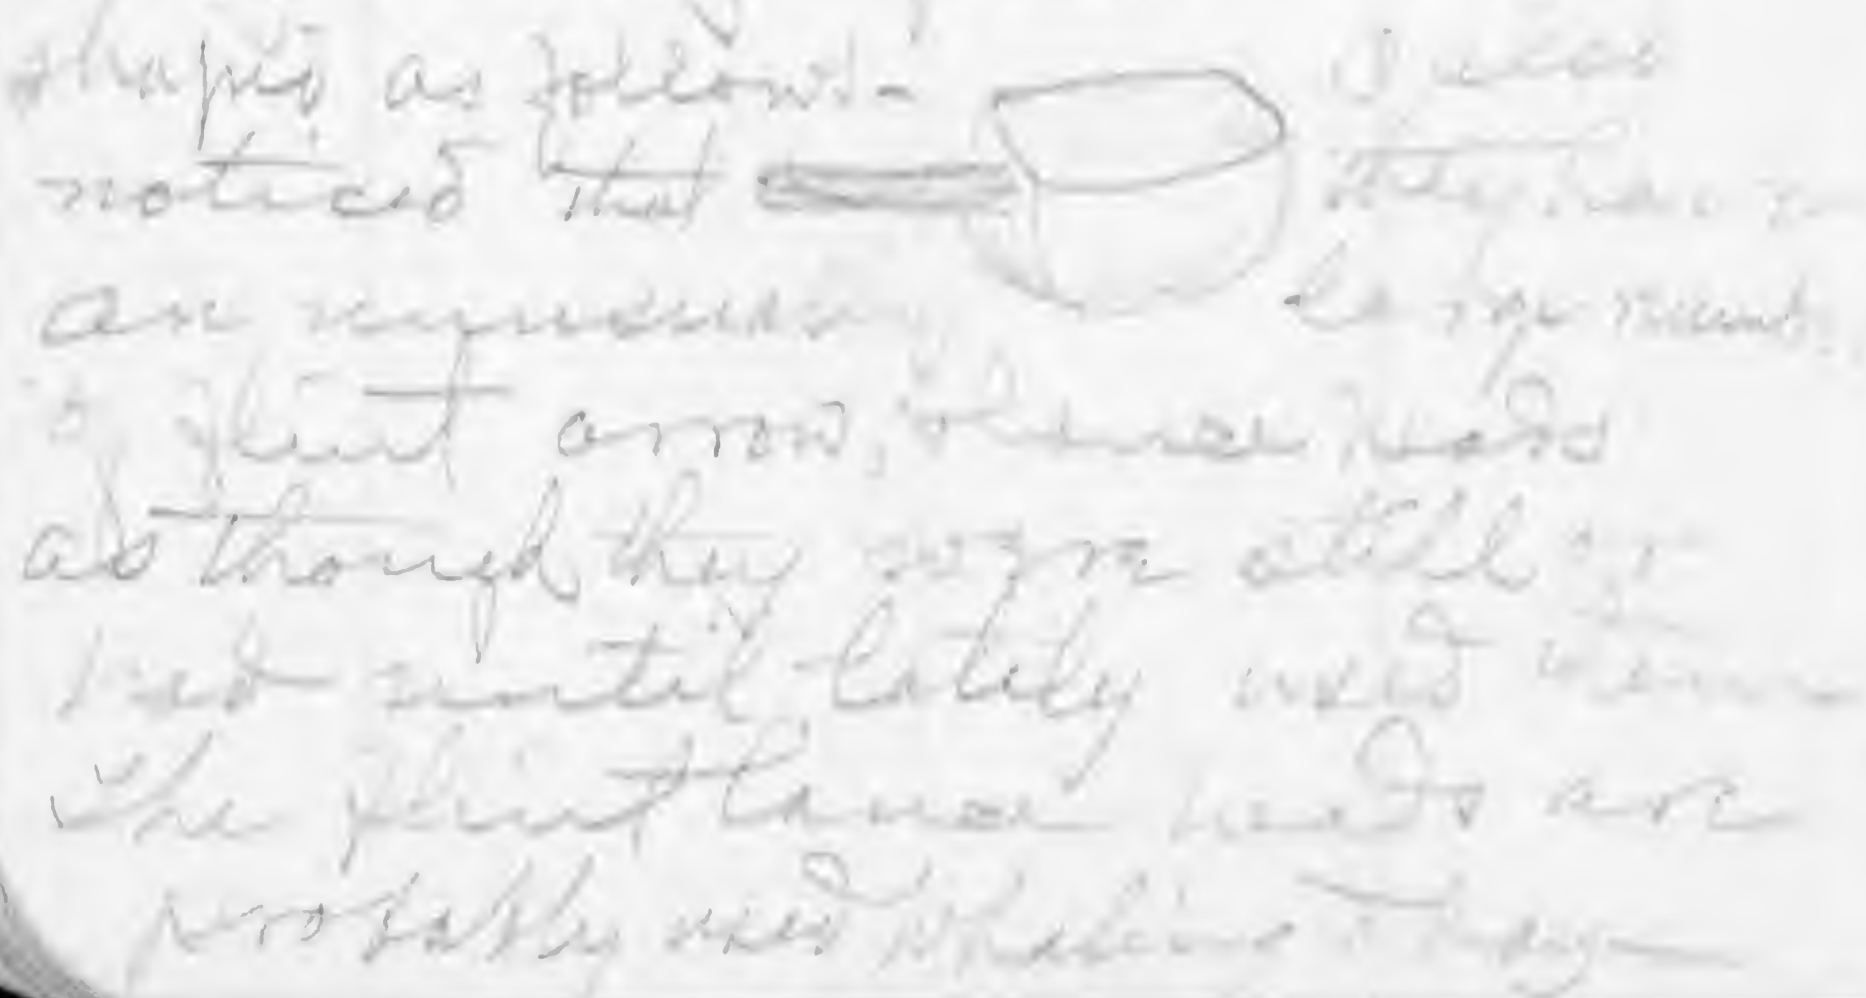 shaped as follows - I was
noticed that they have
an
of flint arrow, & lance heads
as though they were still or
had until lately used them
The flint lance heads are
probably used whaling They